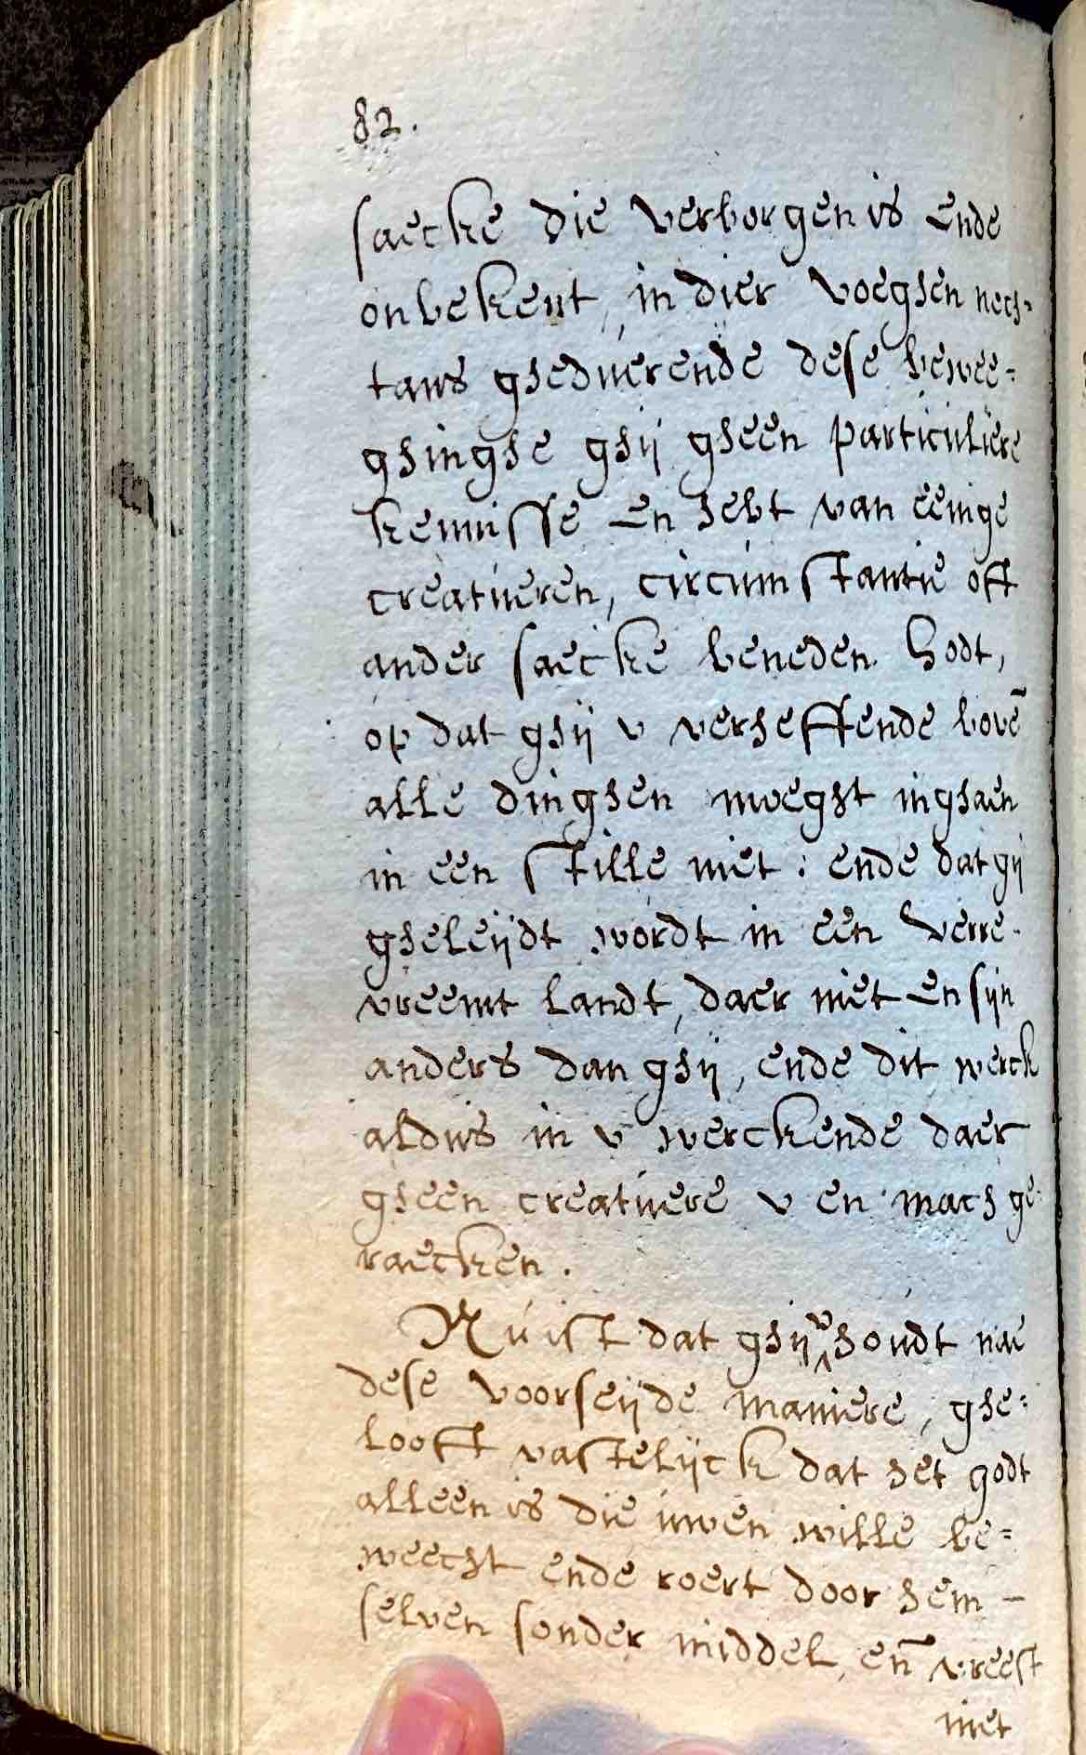 82.
saecke die verborgen is ende
onbekent, in dier voeghen noch-
tans ghedurende dese bewee-
ghinghe ghij gheen particuliere
kennisse en hebt van eenige
creatueren, circumstantie oft
ander saecke beneden Godt,
op dat ghij u verheffende bovē
alle dinghen moeght inghaen
in een stille niet: ende dat gij
gheleijdt wordt in een verre
vreemt landt, daer niet en sijn
anders dan ghij, ende dit werck
aldus in u werckende daer
gheen creatuere u en mach ge-
raecken.
Nu ist dat ghij u houdt nae
dese voorseijde maniere, ghe-
looft vastelijck dat het godt
alleen is die uwen wille be-
weecht ende roert door hem -
selven sonder middel, eñ vreest
niet